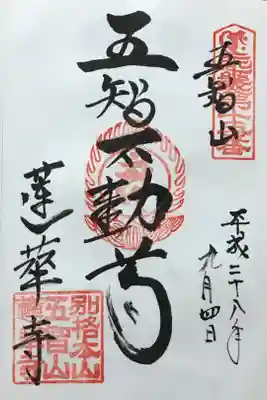 五智山
平成二十八年
九月四日
五智不動尊
蓮華寺
別格本山
五智山
蓮華寺